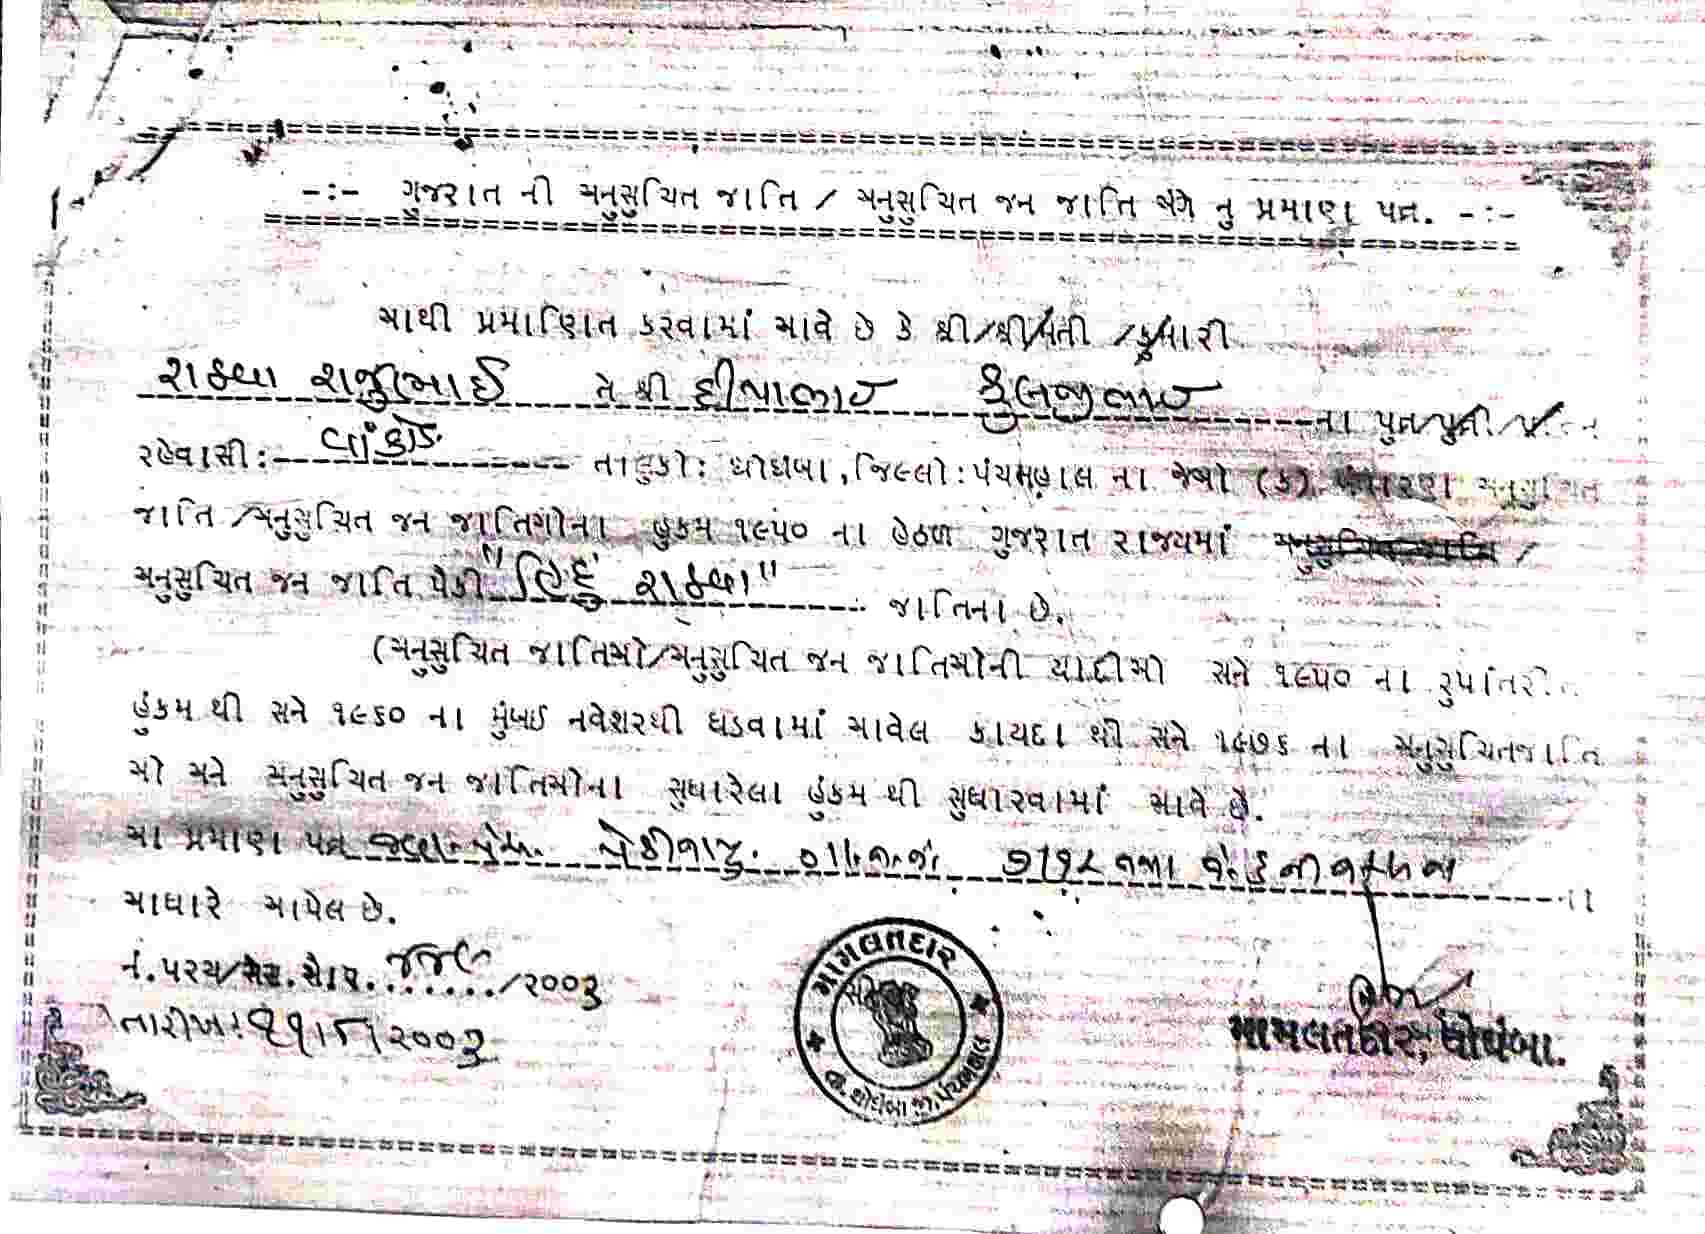 -:- ગુજરાત ની અનુસુચિત જાતિ / અનુસુચિત જન જાતિ અંગે નુ પ્રમાણ પત્ર. -:-
આથી પ્રમાણિત કરવામાં આવે છે કે શ્રી/શ્રીમતી /કુમારી
રાઠવા રાજુભાઈ તે શ્રી દીપાભાઇ ફુલજીભાઇ ના પુત્ર/પુત્રી
રહેવાસી: વાંકોડ તાલુકો: ઘોઘંબા, જિલ્લો: પંચમહાલ ના જેઓ (ક) અનુસુચિત
જાતિ /અનુસુચિત જન જાતિઓના હુકમ ૧૯૫૦ ના હેઠળ ગુજરાત રાજ્યમાં અનુસુચિત જાતિ /
અનુસુચિત જન જાતિ પૈકી "હિંદુ રાઠવા" જાતિના છે.
(અનુસુચિત જાતિઓ/અનુસુચિત જન જાતિઓની યાદીઓ સને ૧૯૫૦ ના રુપાંતરીત
હુંકમ થી સને ૧૯૬૦ ના મુંબઈ નવેસરથી ઘડવામાં આવેલ કાયદા થી સને ૧૯૭૬ ના અનુસુચિતજાતિ
ઓ અને અનુસુચિત જન જાતિઓના સુધારેલા હુંકમ થી સુધારવામાં આવે છે.
આ પ્રમાણ પત્ર
આધારે આપેલ છે.
નં. /૨૦૦૩
તારીખ: ૧૧/૮/૨૦૦૩
મામલતદાર
તા. ઘોઘંબા જી. પંચમહાલ
મામલતદાર, ઘોઘંબા.